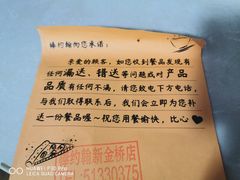 臻约翰向您承诺：
亲爱的顾客，如您收到餐品发现有
任何漏送、错送等问题或对产品
品质有任何不满，请您致电下方电话，
与我们取得联系后，我们会立即为您补
送一份餐品喔~祝您用餐愉快，比心
约翰新金桥店
51330375
HUAWEI P10
LEICA DUAL CAMERA